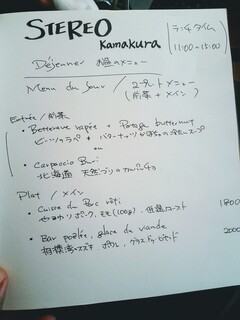 STEREO
Kamakura
ランチタイム
11:00〜15:00
Déjeuner お昼のメニュー
Menu du Jour / 2プレートメニュー
(前菜 + メイン)
Entrée / 前菜
• Betterave rapée + Potage butternut
ビーツのラペ + バターナッツかぼちゃの冷たいスープ
ou
• Carpaccio Buri
北海道 天然ブリのカルパッチョ
Plat / メイン
• Cuisse du Porc rôti
やまゆりポーク、モモ(100g)、低温ロースト 1800
• Bar poêlée, glace de viande
相模湾スズキ ポワレ、グラスドヴィヤンド 2000